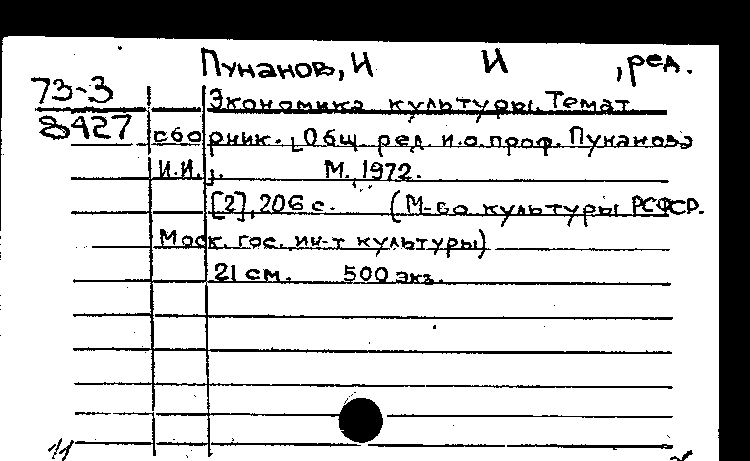 Пунанов, И И , ред.
73-3
8427
Экономика культуры. Темат.
сборник. [Общ. ред. и.о. проф. Пунанова
И.И.]. М., 1972.
[2], 206 с. (М-во культуры РСФСР.
Моск. гос. ин-т культуры)
21 см. 500 экз.
11